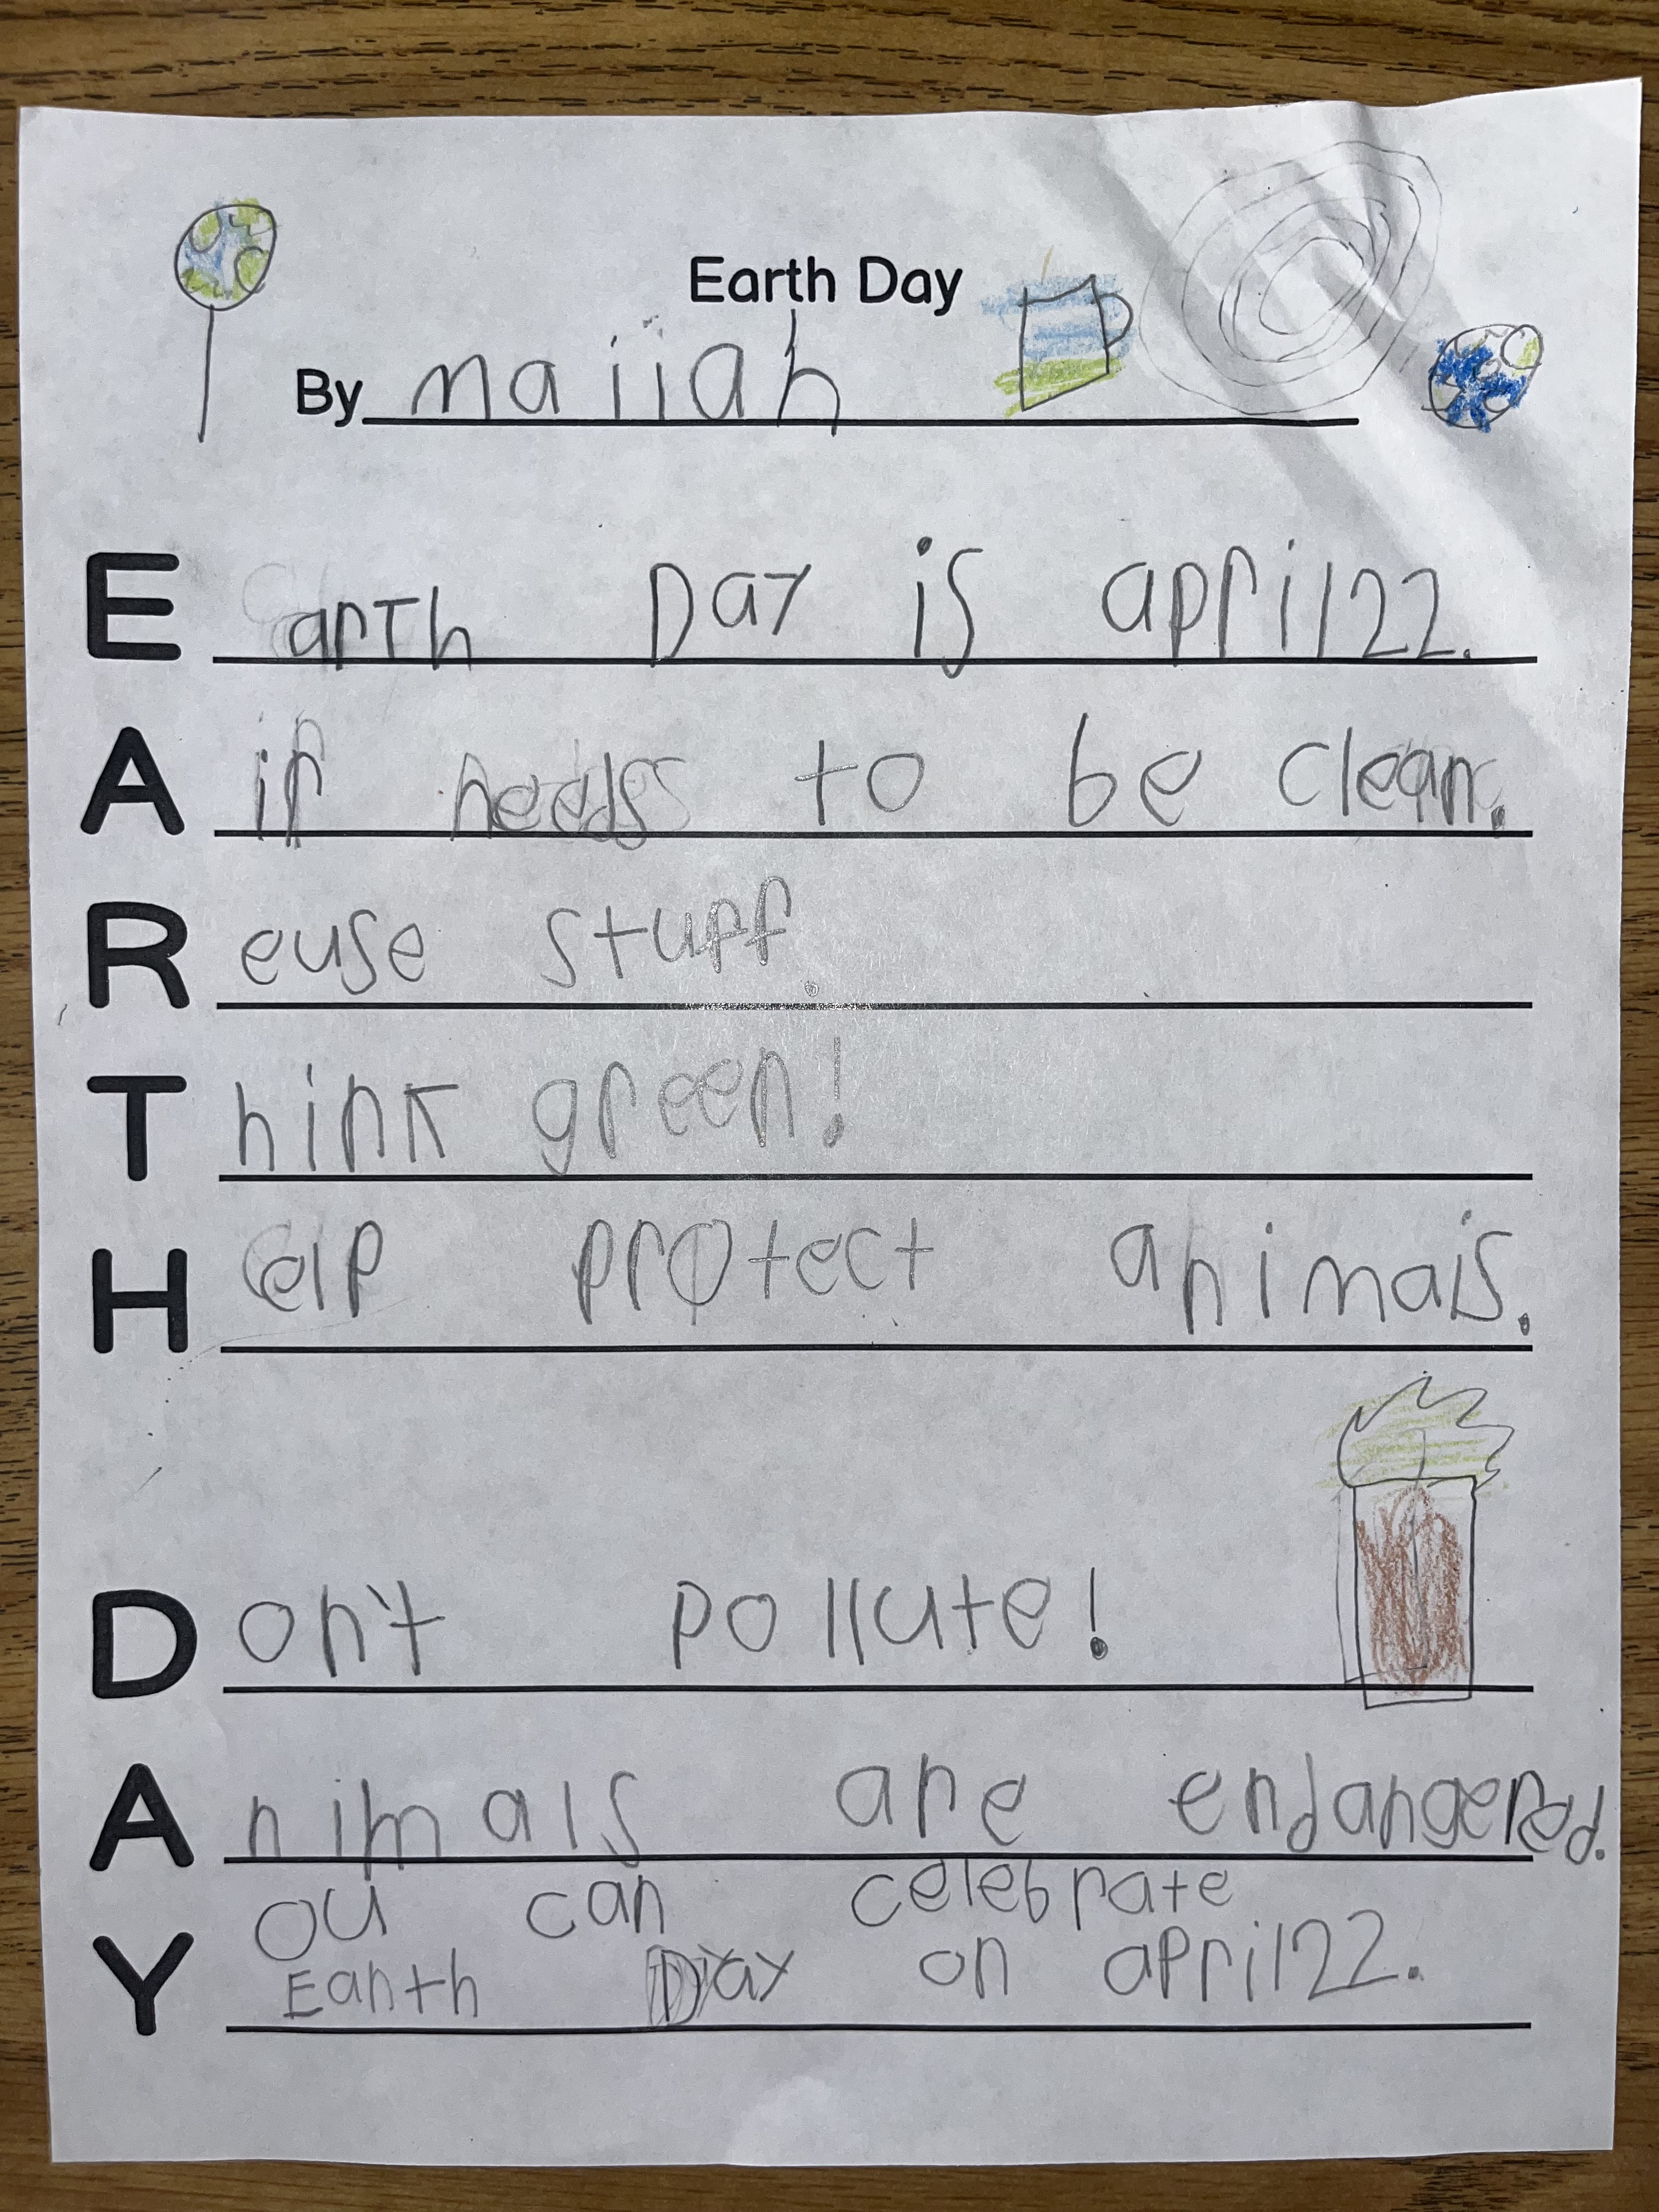 Earth Day
By maiiah
Earth Day is april 22.
Air needs to be clean.
Reuse stuff.
Think green!
Help protect animals.
Don't pollute!
Animals are endangered.
You can celebrate
Earth Day on april 22.